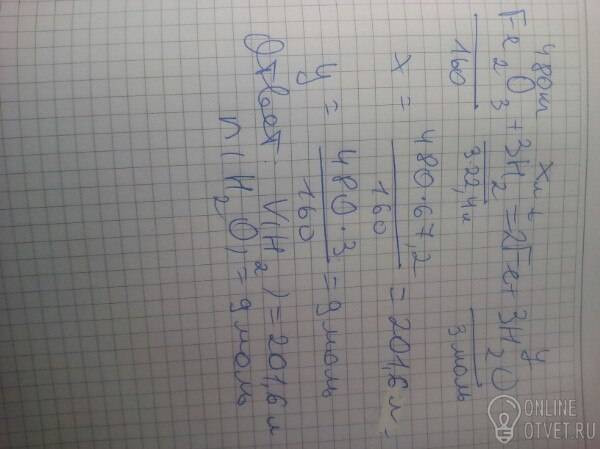 480г x л y
Fe2O3 + 3H2 = 2Fe + 3H2O
160 3·22,4л 3 моль
x = 480·67,2 / 160 = 201,6 л.
y = 480·3 / 160 = 9 моль
Ответ V(H2) = 201,6 л
n(H2O) = 9 моль
ONLINE
OTVET.RU